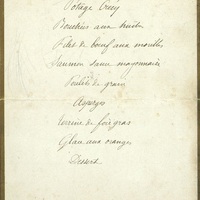 Potage Crecy
Bouchées aux huitres
Filet de bœuf aux morilles
Saumon sauce mayonnaise
Poulets de grain
Asperges
Terrine de foie gras
Glace aux oranges
Dessert